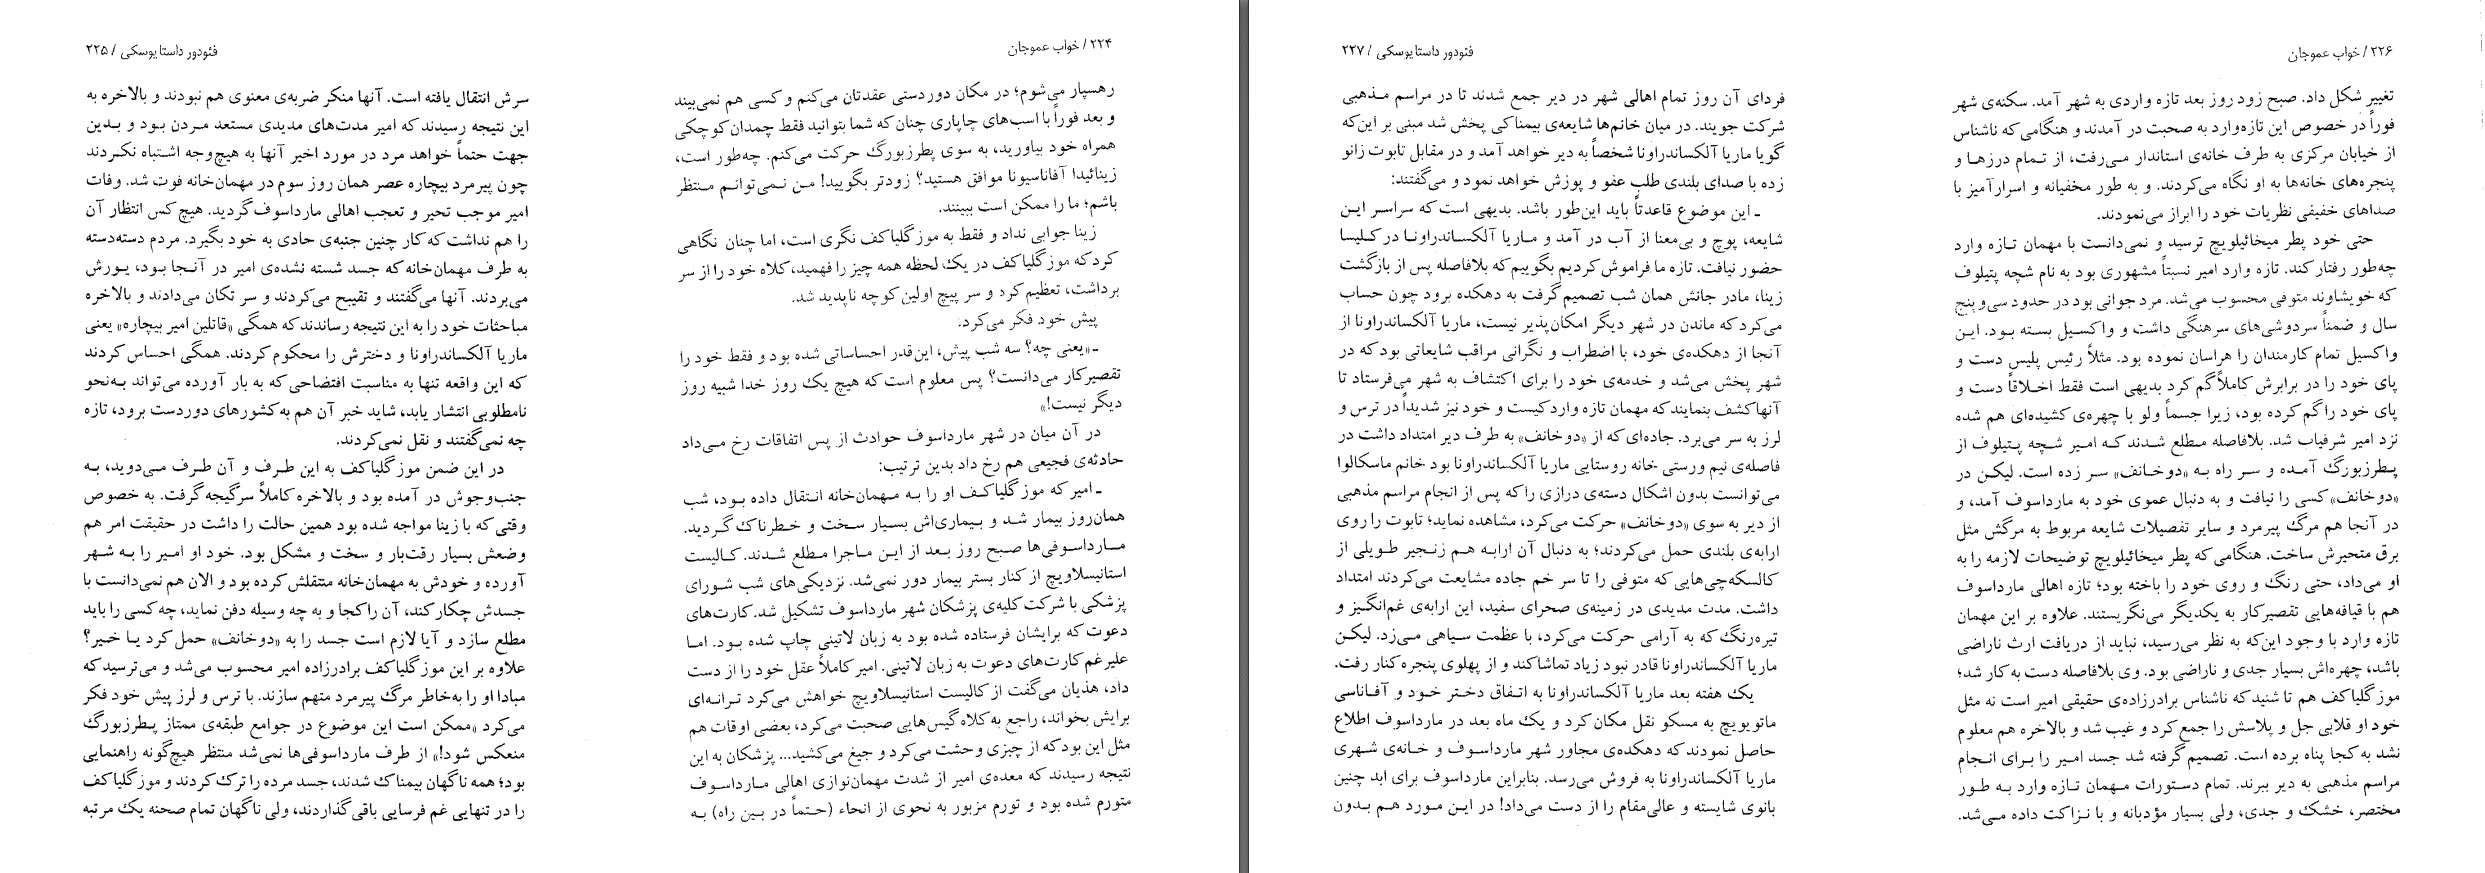 ۲۲۴ / خواب عموجان
رهسپار می‌شوم؛ در مکان دوردستی عقدتان می‌کنم و کسی هم نمی‌بیند
و بعد فوراً با اسب‌های چاپاری چنان که شما بتوانید فقط چمدان کوچکی
همراه خود بیاورید، به سوی پطرزبورگ حرکت می‌کنم. چه‌طور است،
زینائیدا آفاناسیونا موافق هستید؟ زودتر بگویید! من نمی‌توانم منتظر
باشم؛ ما را ممکن است ببینند.
زینا جوابی نداد و فقط به موزگلیاکف نگری است، اما چنان نگاهی
کرد که موزگلیاکف در یک لحظه همه چیز را فهمید، کلاه خود را از سر
برداشت، تعظیم کرد و سر پیچ اولین کوچه ناپدید شد.
پیش خود فکر می‌کرد:
ـ «یعنی چه؟ سه شب پیش، این‌قدر احساساتی شده بود و فقط خود را
تقصیرکار می‌دانست؟ پس معلوم است که هیچ یک روز خدا شبیه روز
دیگر نیست!»
در آن میان در شهر مارداسوف حوادث از پس اتفاقات رخ می‌داد
حادثه‌ی فجیعی هم رخ داد بدین ترتیب:
ـ امیر که موزگلیاکف او را به مهمان‌خانه انتقال داده بود، شب
همان‌روز بیمار شد و بیماری‌اش بسیار سخت و خطرناک گردید.
مارداسوفی‌ها صبح روز بعد از این ماجرا مطلع شدند. کالیست
استانیسلاویچ از کنار بستر بیمار دور نمی‌شد. نزدیکی‌های شب شورای
پزشکی با شرکت کلیه‌ی پزشکان شهر مارداسوف تشکیل شد. کارت‌های
دعوت که برایشان فرستاده شده بود به زبان لاتینی چاپ شده بود. اما
علیرغم کارت‌های دعوت به زبان لاتینی. امیر کاملاً عقل خود را از دست
داد، هذیان می‌گفت از کالیست استانیسلاویچ خواهش می‌کرد ترانه‌ای
برایش بخواند، راجع به کلاه گیس‌هایی صحبت می‌کرد، بعضی اوقات هم
مثل این بود که از چیزی وحشت می‌کرد و جیغ می‌کشید... پزشکان به این
نتیجه رسیدند که معده‌ی امیر از شدت مهمان‌نوازی اهالی مارداسوف
متورم شده بود و تورم مزبور به نحوی از انحاء (حتماً در بین راه) به
فئودور داستایوسکی / ۲۲۵
سرش انتقال یافته است. آنها منکر ضربه‌ی معنوی هم نبودند و بالاخره به
این نتیجه رسیدند که امیر مدت‌های مدیدی مستعد مردن بود و بدین
جهت حتماً خواهد مرد در مورد اخیر آنها به هیچ‌وجه اشتباه نکردند
چون پیرمرد بیچاره عصر همان روز سوم در مهمان‌خانه فوت شد. وفات
امیر موجب تحیر و تعجب اهالی مارداسوف گردید. هیچ کس انتظار آن
را هم نداشت که کار چنین جنبه‌ی حادی به خود بگیرد. مردم دسته‌دسته
به طرف مهمان‌خانه که جسد شسته نشده‌ی امیر در آنجا بود، یورش
می‌بردند. آنها می‌گفتند و تقبیح می‌کردند و سر تکان می‌دادند و بالاخره
مباحثات خود را به این نتیجه رساندند که همگی «قاتلین امیر بیچاره» یعنی
ماریا آلکساندراونا و دخترش را محکوم کردند. همگی احساس کردند
که این واقعه تنها به مناسبت افتضاحی که به بار آورده می‌تواند به‌نحو
نامطلوبی انتشار یابد، شاید خبر آن هم به کشورهای دوردست برود، تازه
چه نمی‌گفتند و نقل نمی‌کردند.
در این ضمن موزگلیاکف به این طرف و آن طرف می‌دوید، به
جنب‌وجوش در آمده بود و بالاخره کاملاً سرگیجه گرفت. به خصوص
وقتی که با زینا مواجه شده بود همین حالت را داشت در حقیقت امر هم
وضعش بسیار رقت‌بار و سخت و مشکل بود. خود او امیر را به شهر
آورده و خودش به مهمان‌خانه منتقلش کرده بود و الان هم نمی‌دانست با
جسدش چکار کند، آن را کجا و به چه وسیله دفن نماید، چه کسی را باید
مطلع سازد و آیا لازم است جسد را به «دوخانف» حمل کرد یا خیر؟
علاوه بر این موزگلیاکف برادرزاده امیر محسوب می‌شد و می‌ترسید که
مبادا او را به‌خاطر مرگ پیرمرد متهم سازند. با ترس و لرز پیش خود فکر
می‌کرد «ممکن است این موضوع در جوامع طبقه‌ی ممتاز پطرزبورگ
منعکس شود!» از طرف مارداسوفی‌ها نمی‌شد منتظر هیچ‌گونه راهنمایی
بود؛ همه ناگهان بیمناک شدند، جسد مرده را ترک کردند و موزگلیاکف
را در تنهایی غم فرسایی باقی گذاردند، ولی ناگهان تمام صحنه یک مرتبه
۲۲۶ / خواب عموجان
تغییر شکل داد. صبح زود روز بعد تازه واردی به شهر آمد. سکنه‌ی شهر
فوراً در خصوص این تازه‌وارد به صحبت در آمدند و هنگامی که ناشناس
از خیابان مرکزی به طرف خانه‌ی استاندار می‌رفت، از تمام درزها و
پنجره‌های خانه‌ها به او نگاه می‌کردند. و به طور مخفیانه و اسرارآمیز با
صداهای خفیفی نظریات خود را ابراز می‌نمودند.
حتی خود پطر میخائیلویچ ترسید و نمی‌دانست با مهمان تازه وارد
چه‌طور رفتار کند. تازه وارد امیر نسبتاً مشهوری بود به نام شچه پتیلوف
که خویشاوند متوفی محسوب می‌شد. مرد جوانی بود در حدود سی‌و پنج
سال و ضمناً سردوشی‌های سرهنگی داشت و واکسیل بسته بود. این
واکسیل تمام کارمندان را هراسان نموده بود. مثلاً رئیس پلیس دست و
پای خود را در برابرش کاملاً گم کرد بدیهی است فقط اخلاقاً دست و
پای خود را گم کرده بود، زیرا جسماً ولو با چهره‌ی کشیده‌ای هم شده
نزد امیر شرفیاب شد. بلافاصله مطلع شدند که امیر شچه پتیلوف از
پطرزبورگ آمده و سر راه به «دوخانف» سر زده است. لیکن در
«دوخانف» کسی را نیافت و به دنبال عموی خود به مارداسوف آمد، و
در آنجا هم مرگ پیرمرد و سایر تفصیلات شایعه مربوط به مرگش مثل
برق متحیرش ساخت. هنگامی که پطر میخائیلویچ توضیحات لازمه را به
او می‌داد، حتی رنگ و روی خود را باخته بود؛ تازه اهالی مارداسوف
هم با قیافه‌هایی تقصیرکار به یکدیگر می‌نگریستند. علاوه بر این مهمان
تازه وارد با وجود این‌که به نظر می‌رسید، نباید از دریافت ارث ناراضی
باشد، چهره‌اش بسیار جدی و ناراضی بود. وی بلافاصله دست به کار شد؛
موزگلیاکف هم تا شنید که ناشناس برادرزاده‌ی حقیقی امیر است نه مثل
خود او قلابی جل و پلاسش را جمع کرد و غیب شد و بالاخره هم معلوم
نشد به کجا پناه برده است. تصمیم گرفته شد جسد امیر را برای انجام
مراسم مذهبی به دیر ببرند. تمام دستورات مهمان تازه وارد به طور
مختصر، خشک و جدی، ولی بسیار مؤدبانه و با نزاکت داده می‌شد.
فئودور داستایوسکی / ۲۲۷
فردای آن روز تمام اهالی شهر در دیر جمع شدند تا در مراسم مذهبی
شرکت جویند. در میان خانم‌ها شایعه‌ی بیمناکی پخش شد مبنی بر این‌که
گویا ماریا آلکساندراونا شخصاً به دیر خواهد آمد و در مقابل تابوت زانو
زده با صدای بلندی طلب عفو و پوزش خواهد نمود و می‌گفتند:
ـ این موضوع قاعدتاً باید این‌طور باشد. بدیهی است که سراسر این
شایعه، پوچ و بی‌معنا از آب در آمد و ماریا آلکساندراونا در کلیسا
حضور نیافت. تازه ما فراموش کردیم بگوییم که بلافاصله پس از بازگشت
زینا، مادر جانش همان شب تصمیم گرفت به دهکده برود چون حساب
می‌کرد که ماندن در شهر دیگر امکان‌پذیر نیست، ماریا آلکساندراونا از
آنجا از دهکده‌ی خود، با اضطراب و نگرانی مراقب شایعاتی بود که در
شهر پخش می‌شد و خدمه‌ی خود را برای اکتشاف به شهر می‌فرستاد تا
آنها کشف بنمایند که مهمان تازه وارد کیست و خود نیز شدیداً در ترس و
لرز به سر می‌برد. جاده‌ای که از «دوخانف» به طرف دیر امتداد داشت در
فاصله‌ی نیم ورستی خانه روستایی ماریا آلکساندراونا بود خانم ماسکالوا
می‌توانست بدون اشکال دسته‌ی درازی را که پس از انجام مراسم مذهبی
از دیر به سوی «دوخانف» حرکت می‌کرد، مشاهده نماید؛ تابوت را روی
ارابه‌ی بلندی حمل می‌کردند؛ به دنبال آن ارابه هم زنجیر طویلی از
کالسکه‌چی‌هایی که متوفی را تا سر خم جاده مشایعت می‌کردند امتداد
داشت. مدت مدیدی در زمینه‌ی صحرای سفید، این ارابه‌ی غم‌انگیز و
تیره‌رنگ که به آرامی حرکت می‌کرد، با عظمت سیاهی می‌زد. لیکن
ماریا آلکساندراونا قادر نبود زیاد تماشا کند و از پهلوی پنجره کنار رفت.
یک هفته بعد ماریا آلکساندراونا به اتفاق دختر خود و آفاناسی
ماتویویچ به مسکو نقل مکان کرد و یک ماه بعد در مارداسوف اطلاع
حاصل نمودند که دهکده‌ی مجاور شهر مارداسوف و خانه‌ی شهری
ماریا آلکساندراونا به فروش می‌رسد. بنابراین مارداسوف برای ابد چنین
بانوی شایسته و عالی‌مقام را از دست می‌داد! در این مورد هم بدون